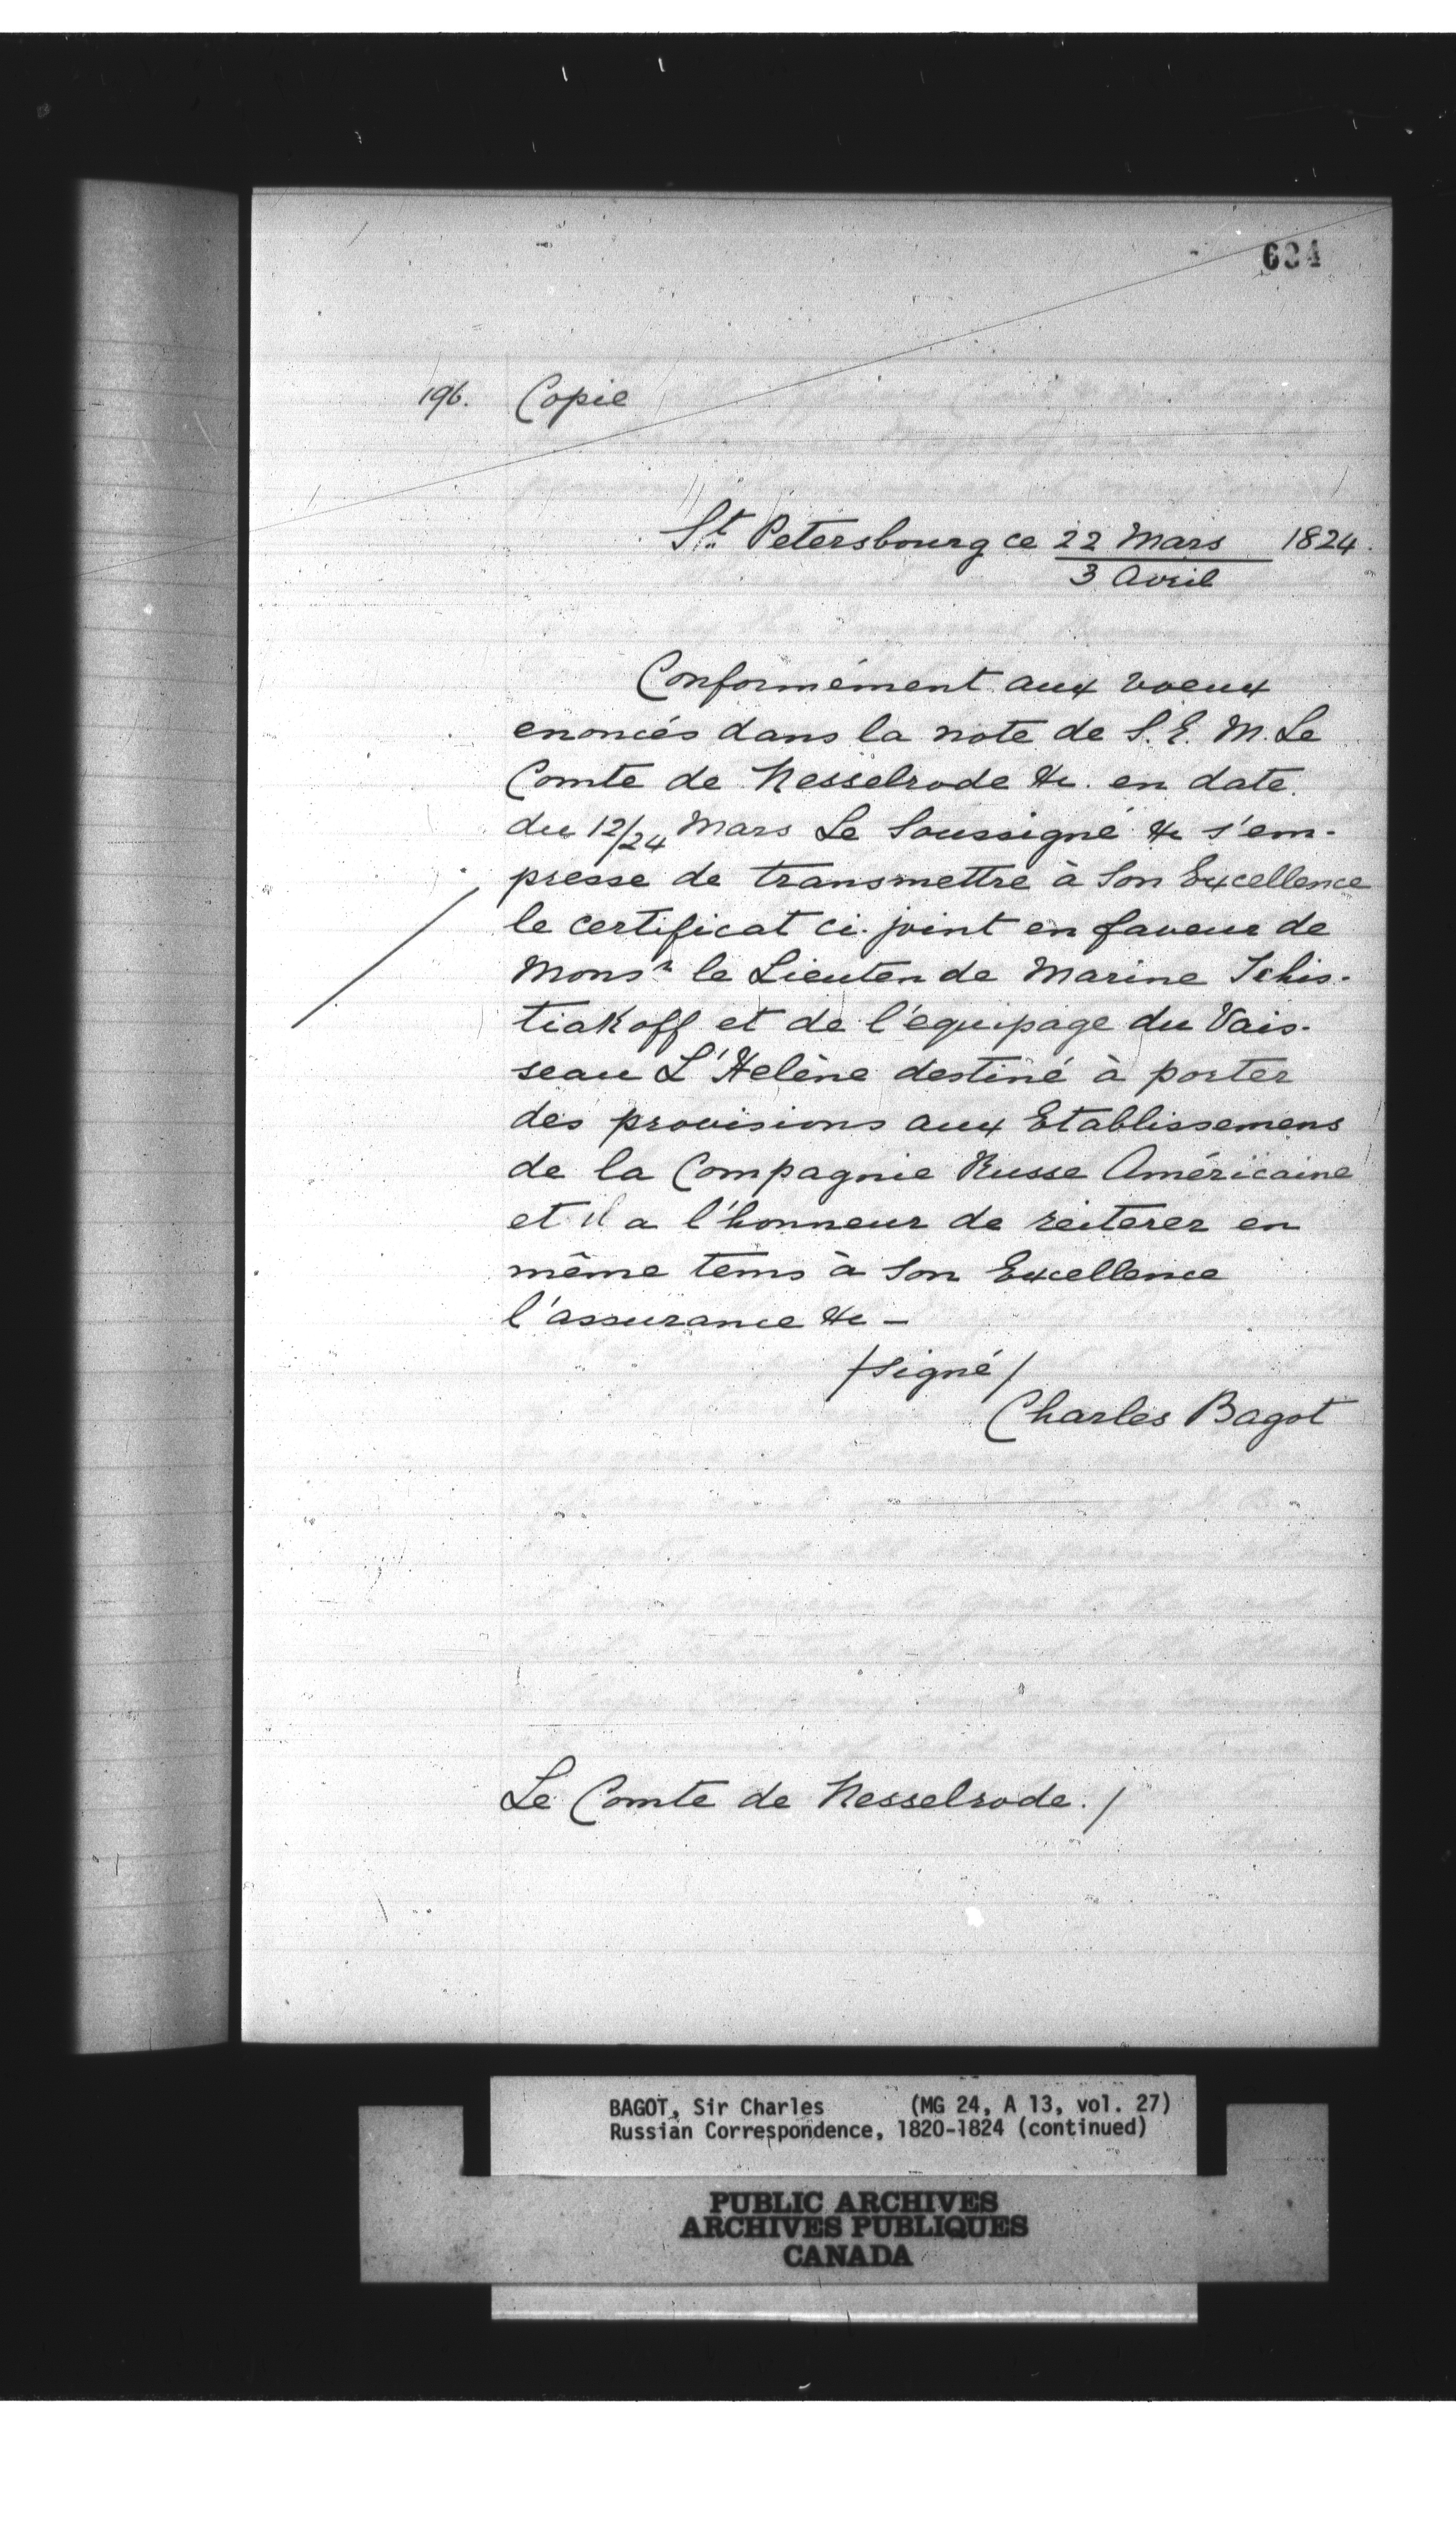 634
196. Copie
St Petersbourg ce 22 Mars 1824.
3 Avril
Conformément aux voeux
enoncés dans la note de S. E. M. Le
Comte de Nesselrode &c. en date
du 12/24 Mars Le Soussigné &c s'em-
presse de transmettre à Son Excellence
le certificat ci-joint en faveur de
Monsr le Lieuten de Marine Tchis-
tiakoff et de l'equipage du Vais-
seau L'Helène destiné à porter
des provisions aux Etablissemens
de la Compagnie Russe Américaine
et il a l'honneur de reiterer en
même tems à Son Excellence
l'assurance &c -
/signé/
Charles Bagot
Le Comte de Nesselrode. /
BAGOT, Sir Charles (MG 24, A 13, vol. 27)
Russian Correspondence, 1820-1824 (continued)
PUBLIC ARCHIVES
ARCHIVES PUBLIQUES
CANADA